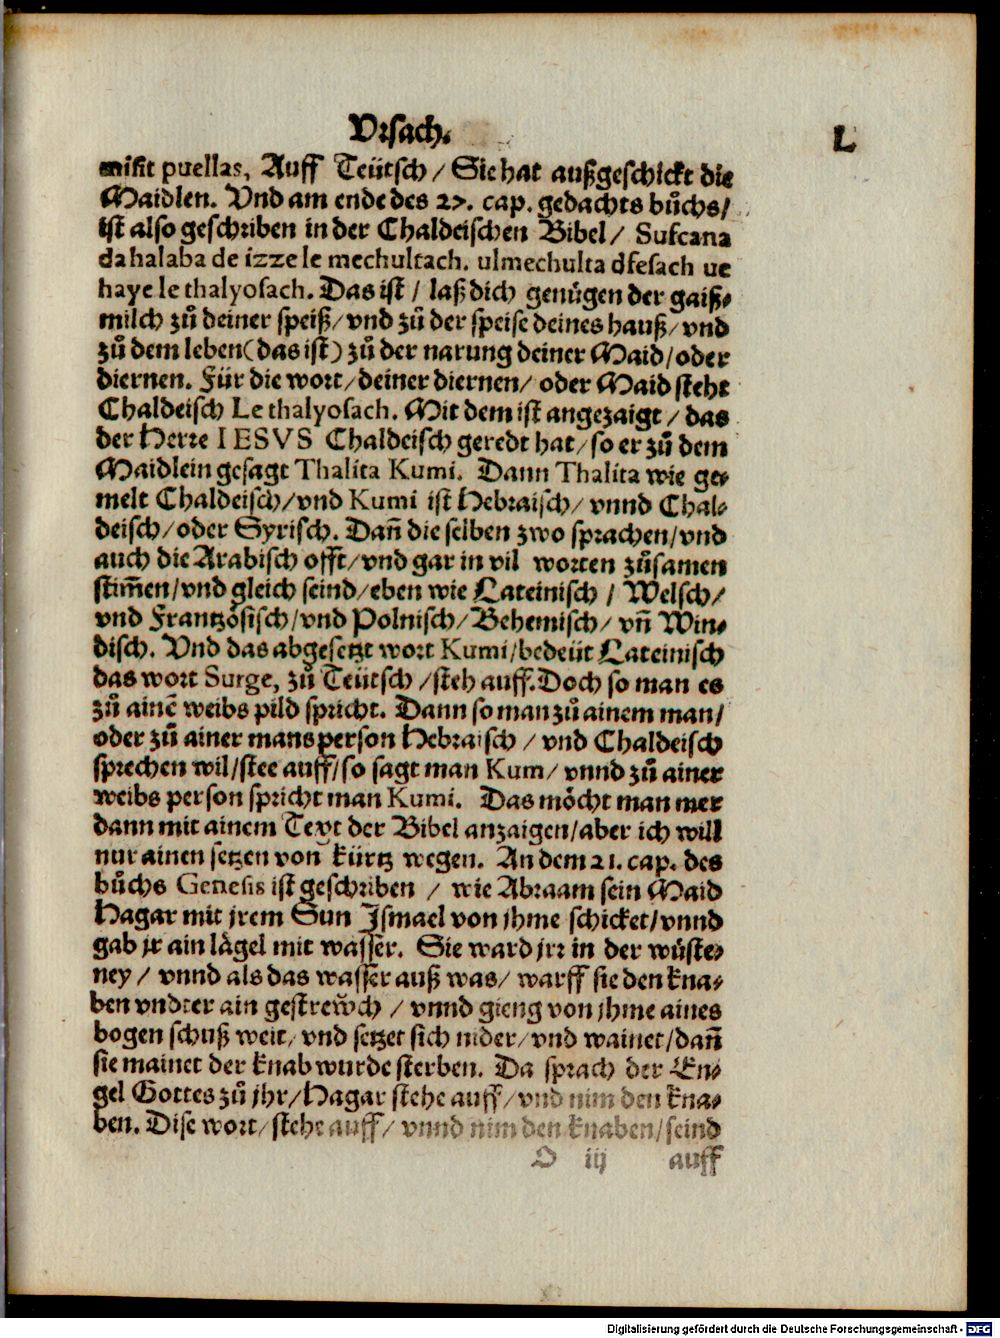 Vrsach.
L
misit puellas, Auff Teütsch / Sie hat außgeschickt die
Maidlen. Vnd am ende des 27. cap. gedachts bůchs/
ist also geschriben in der Chaldeischen Bibel / Sufcana
da halaba de izze le mechultach. ulmechulta dfesach ue
haye le thalyosach. Das ist / laß dich genůgen der gaiß-
milch zů deiner speiß/vnd zů der speise deines hauß/vnd
zů dem leben(das ist) zů der narung deiner Maid/oder
diernen. Für die wort/deiner diernen/ oder Maid steht
Chaldeisch Le thalyosach. Mit dem ist angezaigt / das
der Herre IESVS Chaldeisch geredt hat/so er zů dem
Maidlein gesagt Thalita Kumi. Dann Thalita wie ge-
melt Chaldeisch/vnd Kumi ist Hebraisch/ vnnd Chal-
deisch/oder Syrisch. Dañ die selben zwo sprachen/vnd
auch die Arabisch offt/vnd gar in vil worten zůsamen
stim̃en/vnd gleich seind/eben wie Lateinisch / Welsch/
vnd Frantzôsisch/vnd Polnisch/Behemisch/ vñ Win-
disch. Vnd das abgesetzt wort Kumi/bedeüt Lateinisch
das wort Surge, zů Teütsch /steh auff. Doch so man es
zů ainẽ weibs pild spricht. Dann so man zů ainem man/
oder zů ainer mans person Hebraisch / vnd Chaldeisch
sprechen wil/stee auff/so sagt man Kum/ vnnd zů ainer
weibs person spricht man Kumi. Das môcht man mer
dann mit ainem Text der Bibel anzaigen/aber ich will
nur ainen setzen von kürtz wegen. An dem 21. cap. des
bůchs Genesis ist geschriben / wie Abraam sein Maid
Hagar mit jrem Sun Ismael von jhme schicket/vnnd
gab jr ain lâgel mit wasser. Sie ward jrr in der wůste-
ney / vnnd als das wasser auß was/ warff sie den kna-
ben vndter ain gestreẘch / vnnd gieng von jhme aines
bogen schuß weit/ vnd setzet sich nider/vnd wainet/dañ
sie mainet der knab wurde sterben. Da sprach der En-
gel Gottes zů jhr/Hagar stehe auff/vnd nim den kna-
ben. Dise wort/stehe auff/ vnnd nim den knaben/seind
O iij auff
Digitalisierung gefördert durch die Deutsche Forschungsgemeinschaft - DFG